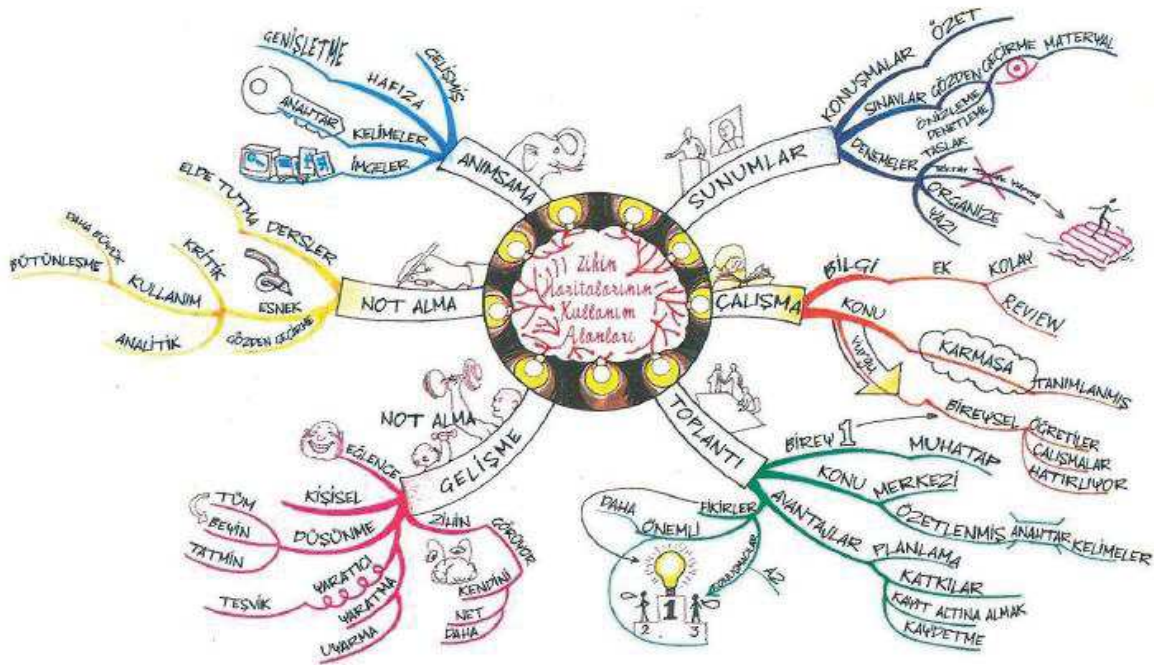 Zihin
Haritalarının
Kullanım
Alanları
ANIMSAMA
GELİŞMİŞ
HAFIZA
GENİŞLETME
KELİMELER
ANAHTAR
İMGELER
SUNUMLAR
KONUŞMALAR
ÖZET
SINAVLAR
GÖZDEN GEÇİRME MATERYAL
ÖNİZLEME
DENETLEME
DENEMELER
TASLAK
ORGANİZE
YAZI
ÇALIŞMA
BİLGİ
EK
KOLAY
REVIEW
KONU
KARMAŞA
TANIMLANMIŞ
vurgu
BİREYSEL
ÖĞRETİLER
ÇALIŞMALAR
HATIRLIYOR
TOPLANTI
BİREY 1
MUHATAP
KONU MERKEZİ
ÖZETLENMİŞ ANAHTAR KELİMELER
AVANTAJLAR
PLANLAMA
KATKILAR
KAYIT ALTINA ALMAK
KAYDETME
FİKİRLER
ÖNEMLİ
DAHA
KONUŞMACILAR
AZ
1
2.
3
GELİŞME
NOT ALMA
EĞLENCE
KİŞİSEL
DÜŞÜNME
TÜM
BEYİN
TATMİN
YARATICI
TEŞVİK
YARATMA
UYARMA
ZİHİN
GÖRÜYOR
KENDİNİ
NET
DAHA
NOT ALMA
DERSLER
ELDE TUTMA
ESNEK
GÖZDEN GEÇİRME
KRİTİK
KULLANIM
DAHA BÜYÜK
BÜTÜNLEŞME
ANALİTİK